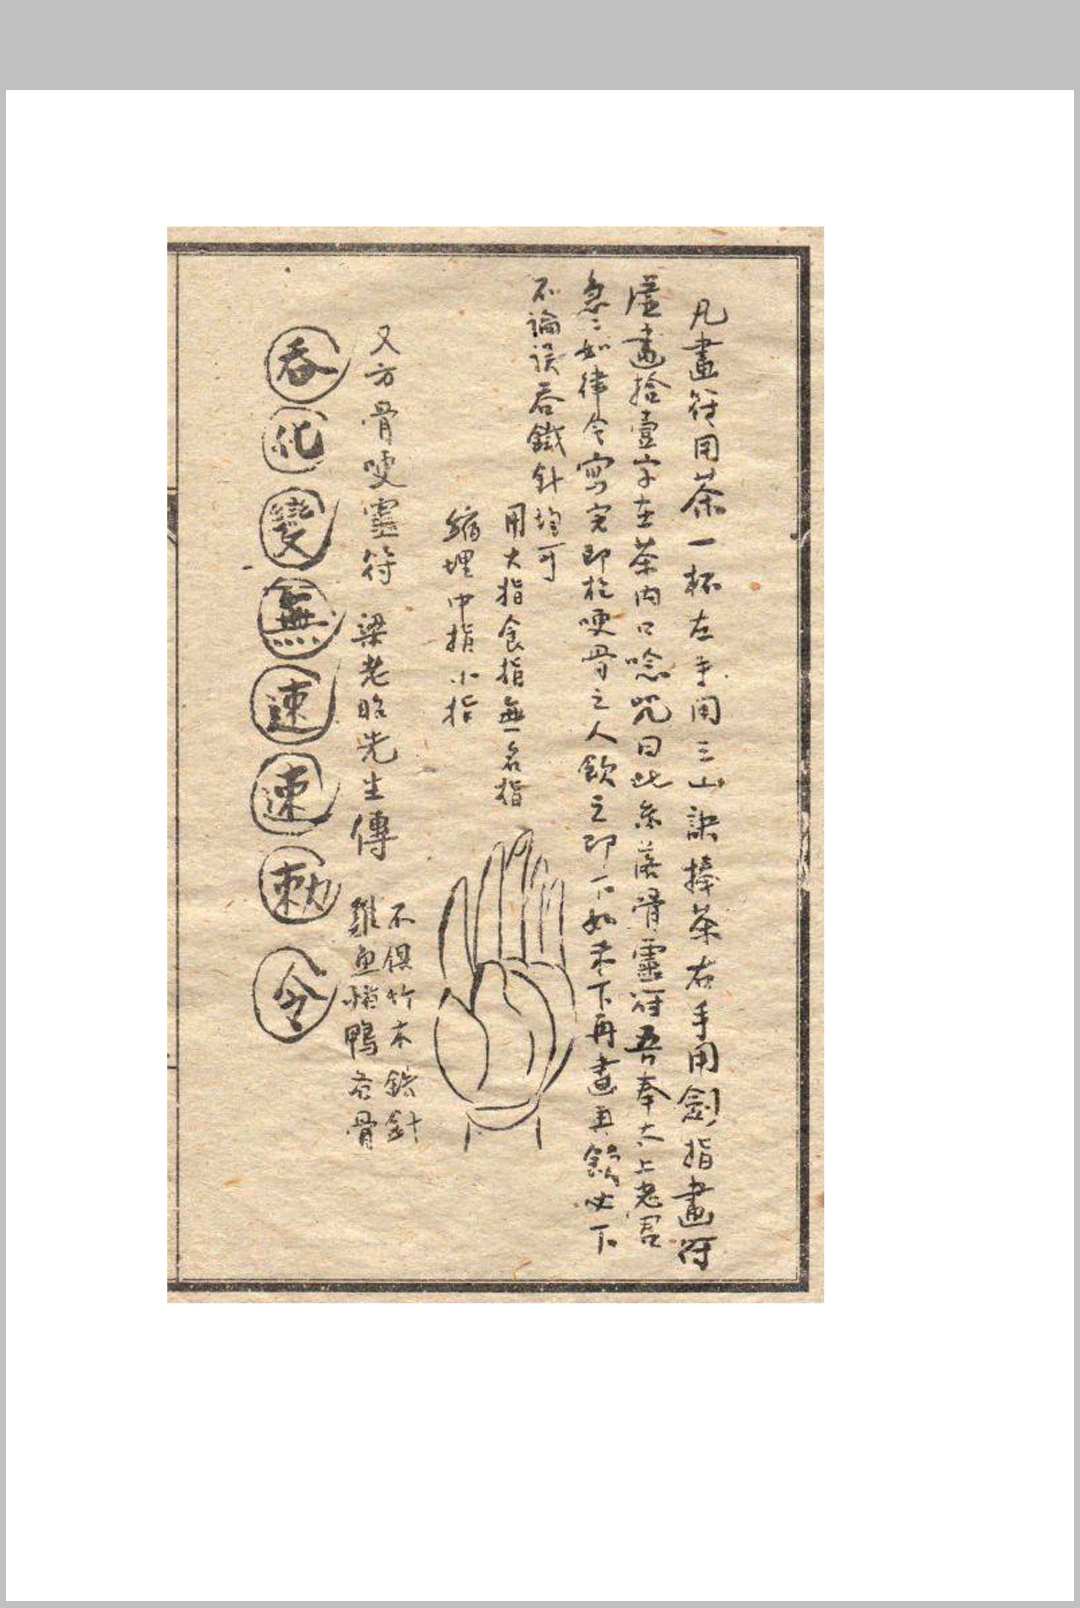 凡畫符用茶一杯左手用三山訣捧茶右手用劍指畫符
虛畫拾壹字在茶內口唸咒曰此茶落骨靈符吾奉太上老君
急〻如律令寫完即於哽骨之人飲之即下如未下再畫再飲必下
不論誤吞鐵針均可
用大指食指無名指
縮埋中指小指
又方骨哽靈符 梁老昭先生傳
不俱竹木鉄針
雞魚鵝鴨各骨
吞化變無速速勅令